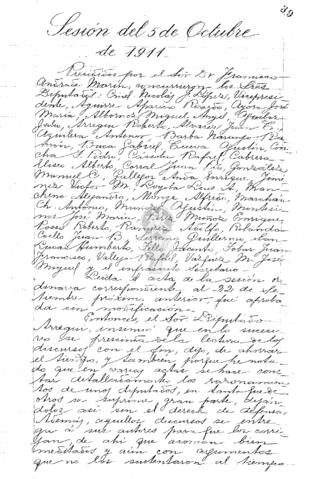 39
Sesión del 5 de Octubre
de 1911.
Presidida por el Sor Dr Francisco
Andrade Marín, concurrieron los Sres
Diputados: Crnel Nicolás F. López, Vicepresi-
dente, Aguirre Aparicio Rosario, Ayora José
María, Albornoz Miguel Angel, Aguilar
Julio, Arregui Roberto, Araujo Juan C,
Aguilera Antonio, Barba Naranjo Ra-
món, Baca Gabriel, Cueva Agustín, Con-
cha S. Pedro, Rafael, Cabrera
Eliseo Alberto, Corral Juan, González
Manuel C., Gallegos Anda Enrique, Jimé-
nez Víctor M. Loyola Luis A, Man-
cheno Alejandro, Monge Alfredo, Marchán
Antonio, Agustín,
José Martín, Muñoz Enrique,
Roberto, Ramírez Adolfo,
Juan B, Guillermo, San
Lucas Humberto, Tello Jacinto, Tobar Juan
Francisco, Vallejo Rafael, Vázquez M. José
Miguel y el infrascrito Secretario.
Leída el acta de la sesión or-
dinaria correspondiente al 22 de Se-
tiembre próximo anterior, fué aproba-
da sin modificación.
Entonces, el Sor Diputado
Arregui, insinuó que en lo sucesi-
vo se prescinda de la lectura de los
discursos con el fin, dijo, de ahorrar
el tiempo, y también, porque he nota-
do que en varias actas se hace cons-
tar detalladamente los razonamien-
tos de unos diputados, en tanto que de
otros se suprime gran parte, deján-
dolos así sin el derecho de defensa.
Además, aquellos discursos se entre-
gan a sus autores para que los corri-
jan, de ahí que asoman bien
meditados y aún con argumentos
que no los sustentaron al tiempo